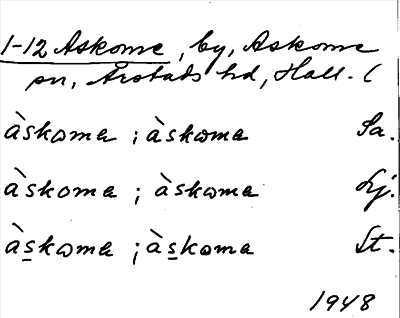 1-12 Askome, by, Askome
sn, Årstads hd, Hall. (
àskoma ; àskɷma Sa.
àskoma ; àskɷma Lj.
às̲kɷma ; às̲koma St.
1948